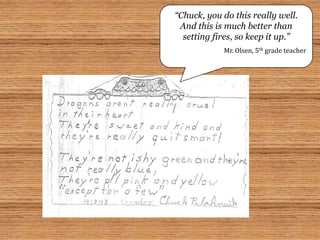 “Chuck, you do this really well.
And this is much better than
setting fires, so keep it up.”
Mr. Olsen, 5th grade teacher
Dragons arent really cruel
in their heart
They're sweet and kind and
they're really quit smart!
They're not ishy green and they're
not really blue,
They're all pink and yellow
"except for a few"
Chuck Palahnuik